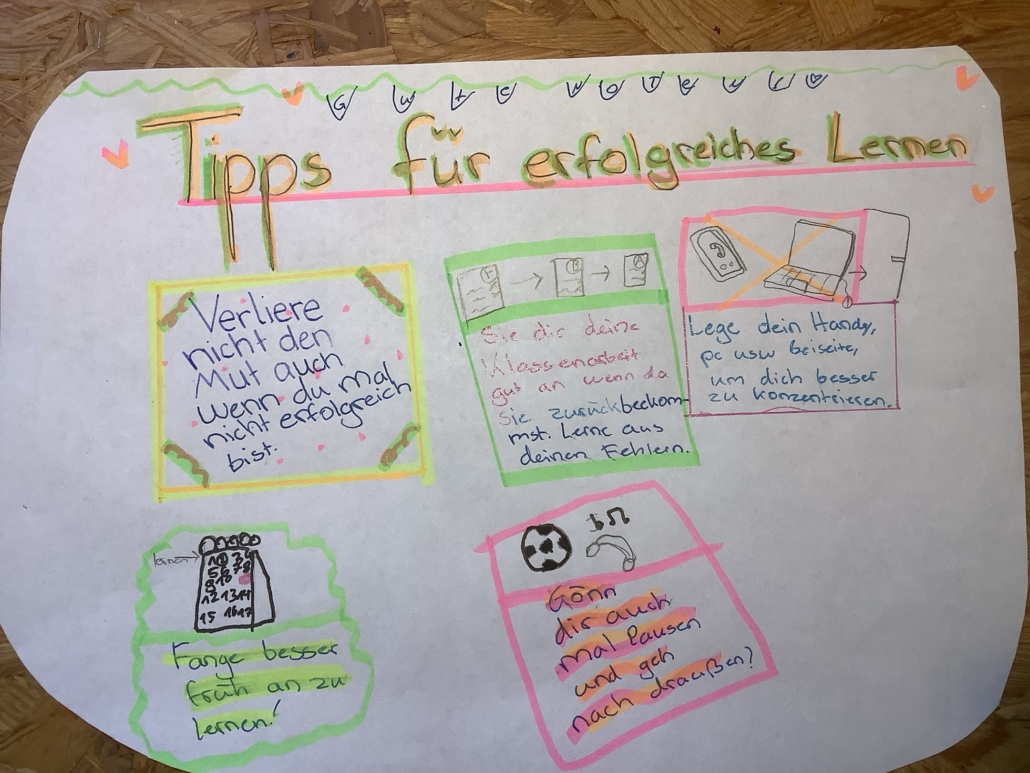 Tipps für erfolgreiches Lernen
Verliere
nicht den
Mut auch
wenn du mal
nicht erfolgreich
bist.
Sie dir deine
Klassenarbeit
gut an wenn du
Sie zurückbekom-
mst. Lerne aus
deinen Fehlern.
Lege dein Handy,
pc usw beiseite,
um dich besser
zu konzentrieren.
lernen
Fange besser
früh an zu
lernen!
Gönn
dir auch
mal Pausen
und geh
nach draußen?